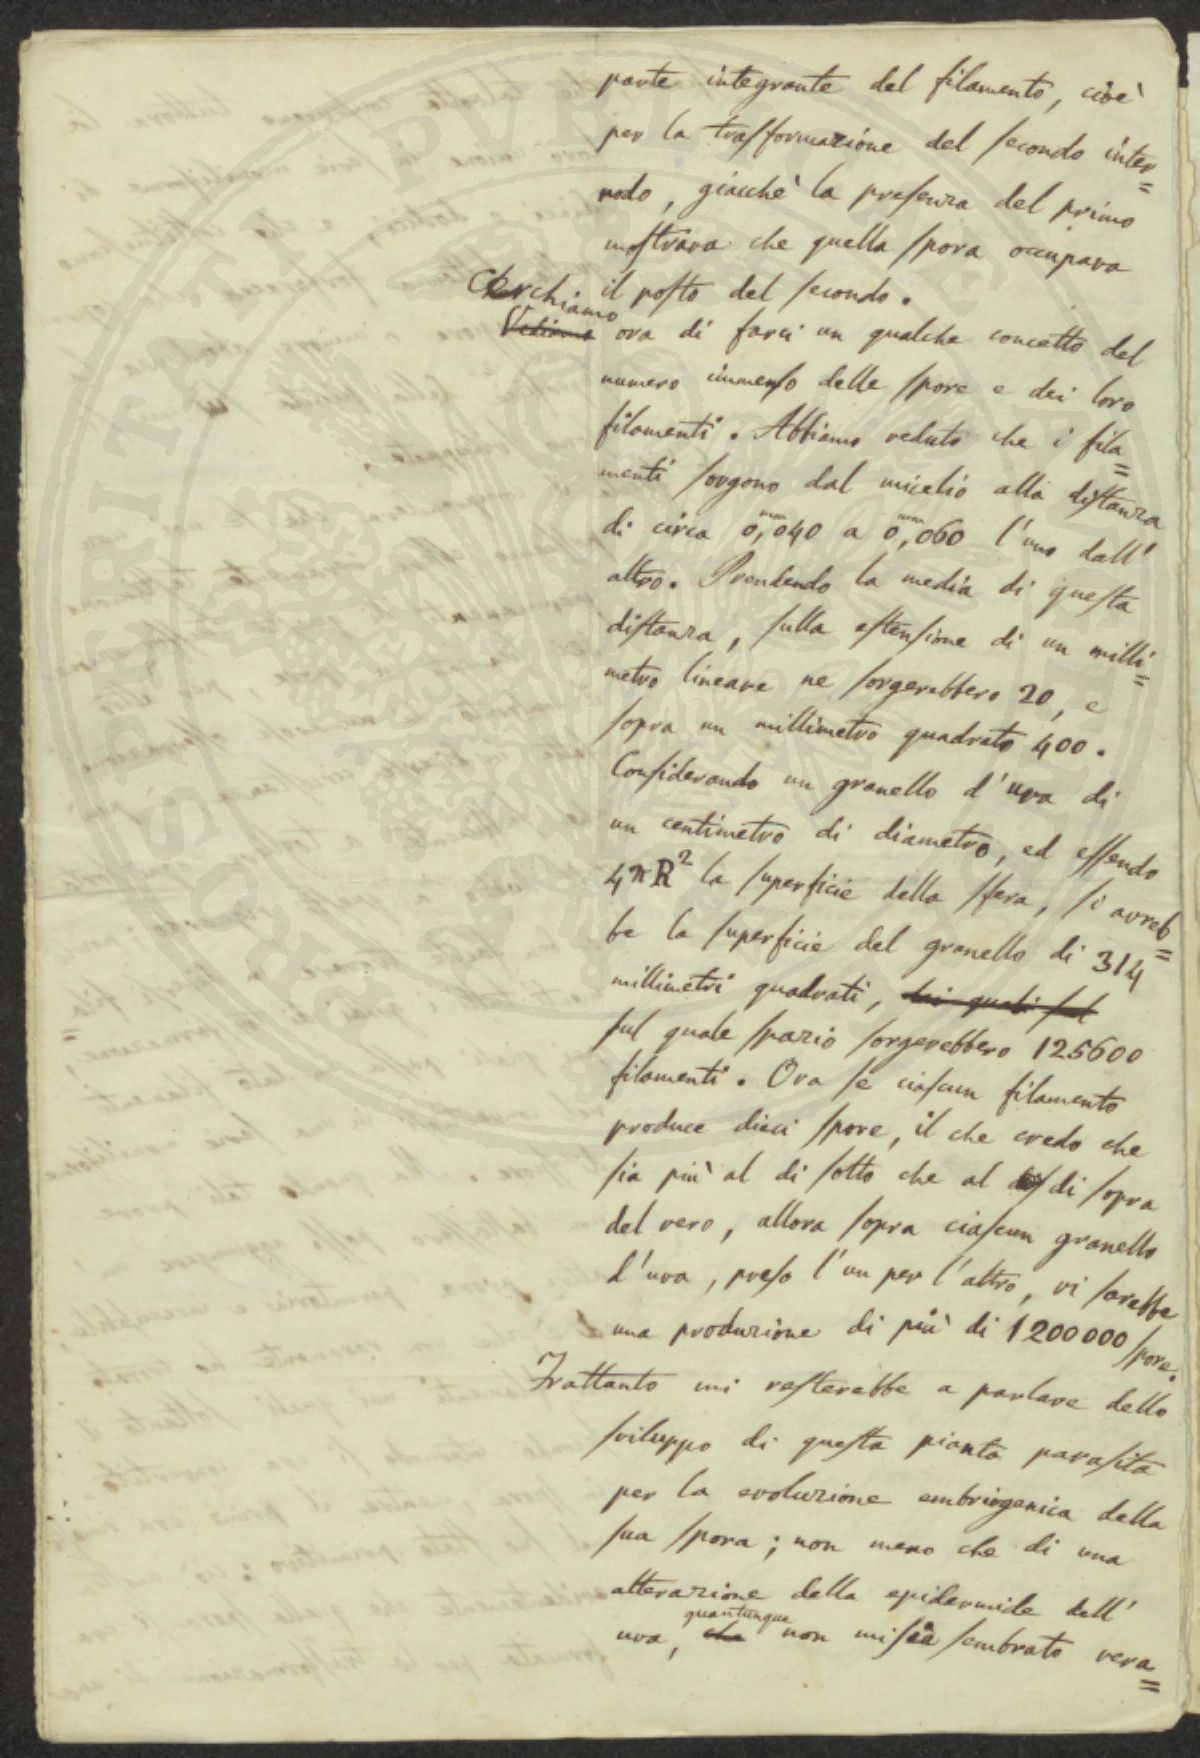 parte integrante del filamento, cioè
per la trasformazione del secondo inter=
nodo, giacchè la presenza del primo
mostrava che quella spora occupava
il posto del secondo.
Cerchiamo
Vediamo ora di farci un qualche concetto del
numero immenso delle spore e dei loro
filamenti. Abbiamo veduto che i fila=
menti sorgono dal micelio alla distanza
di circa 0,mm040 a 0,mm060 l'uno dall'
altro. Prendendo la media di questa
distanza, sulla estensione di un milli=
metro lineare ne sorgerebbero 20, e
sopra un millimetro quadrato 400.
Considerando un granello d'uva di
un centimetro di diametro, ed essendo
4πR² la superficie della sfera, si avreb=
be la superficie del granello di 314
millimetri quadrati, dei quali sul
sul quale spazio sorgerebbero 125600
filamenti. Ora se ciascun filamento
produce dieci spore, il che credo che
sia più al di sotto che al di sopra
del vero, allora sopra ciascun granello
d'uva, preso l'un per l'altro, vi sarebbe
una produzione di più di 1200000 spore.
Frattanto mi resterebbe a parlare dello
sviluppo di questa pianta parasita
per la evoluzione embriogenica della
sua spora; non meno che di una
alterazione della epidermide dell'
quantunque
uva, che non mi sia sembrato vera=
PROSPERITATI PVBLICAE